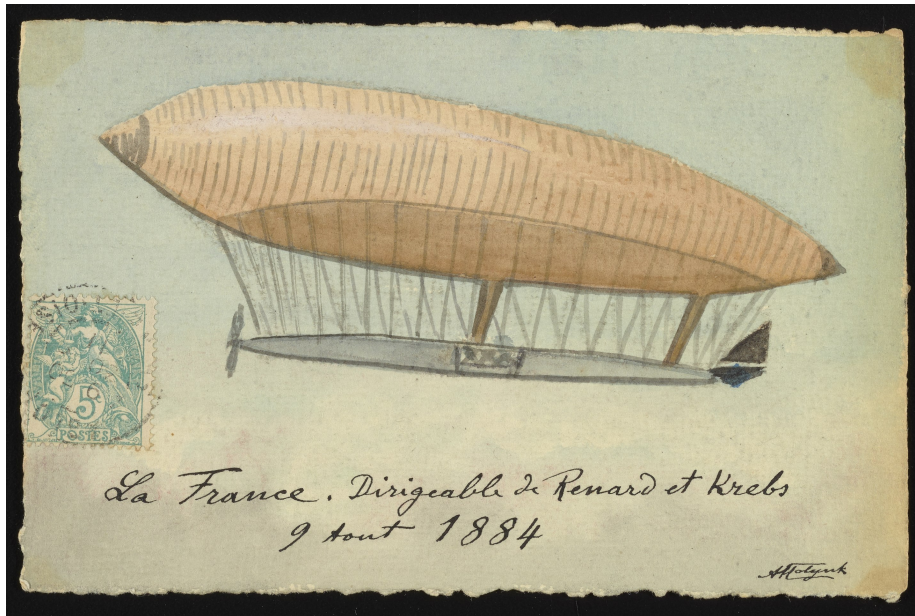 5c
POSTES
La France. Dirigeable de Renard et Krebs
9 Aout 1884